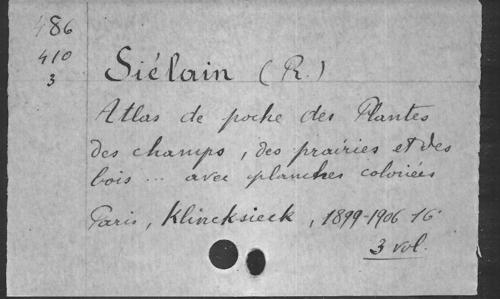 486
410
3
Siélain (R.)
Atlas de poche des Plantes
des champs, des prairies et des
bois ... avec planches coloriées
Paris, Klincksieck, 1899-1906 16°
3 vol.